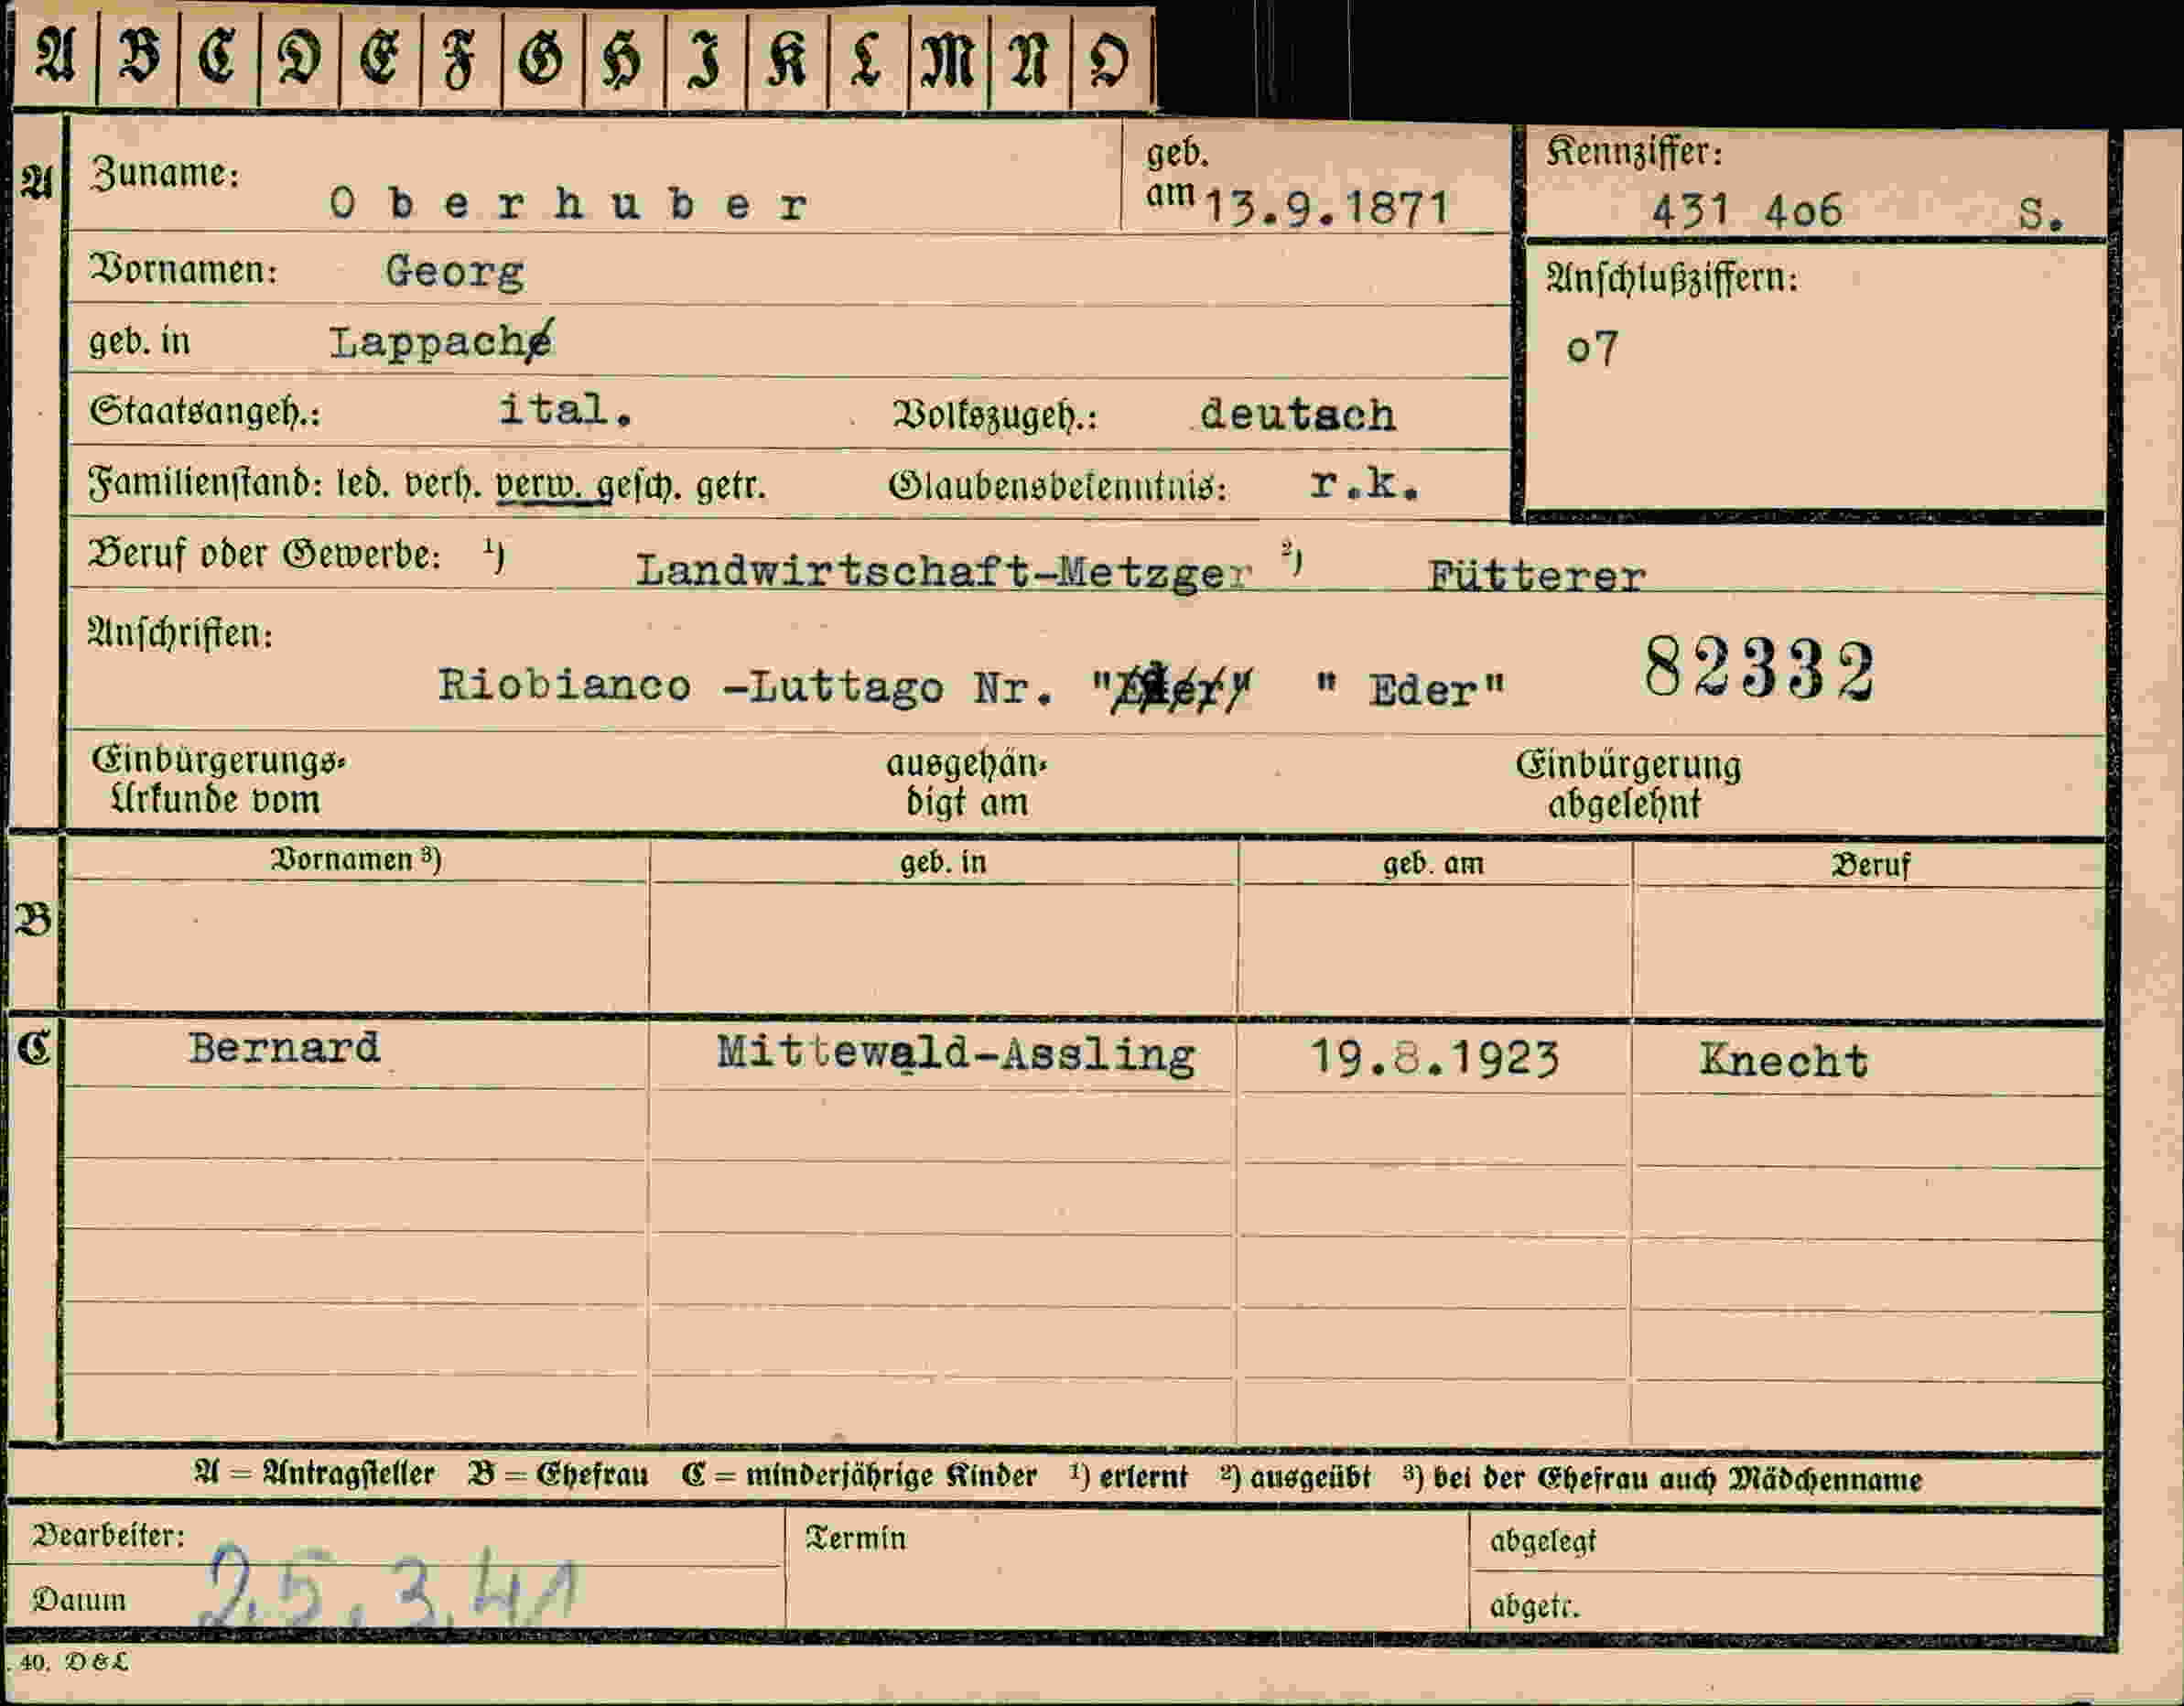 A B C D E F G H I K L M N O
A Zuname: Oberhuber geb. am 13.9.1871 Kennziffer: 431 4o6 S.
Vornamen: Georg Anschlußziffern:
geb. in Lappach o7
Staatsangeh.: ital. Volkszugeh.: deutsch
Familienstand: led. verh. verw. gesch. getr. Glaubensbekenntnis: r.k.
Beruf oder Gewerbe: 1) Landwirtschaft-Metzger 2) Fütterer
Anschriften:
Riobianco -Luttago Nr. "Eder" " Eder" 82332
Einbürgerungs- ausgehän- Einbürgerung
Urkunde vom digt am abgelehnt
Vornamen 3) geb. in geb. am Beruf
B
C Bernard Mittewald-Assling 19.8.1923 Knecht
A = Antragsteller B = Ehefrau C = minderjährige Kinder 1) erlernt 2) ausgeübt 3) bei der Ehefrau auch Mädchenname
Bearbeiter: Termin abgelegt
Datum 25.3.41 abgetr.
40. D&L